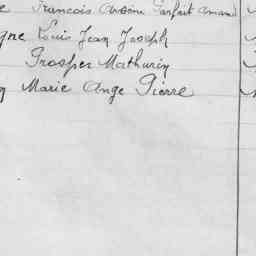 François Arsène Parfait Amand
Louis Jean Joseph
Prosper Mathurin
Marie Ange Pierre